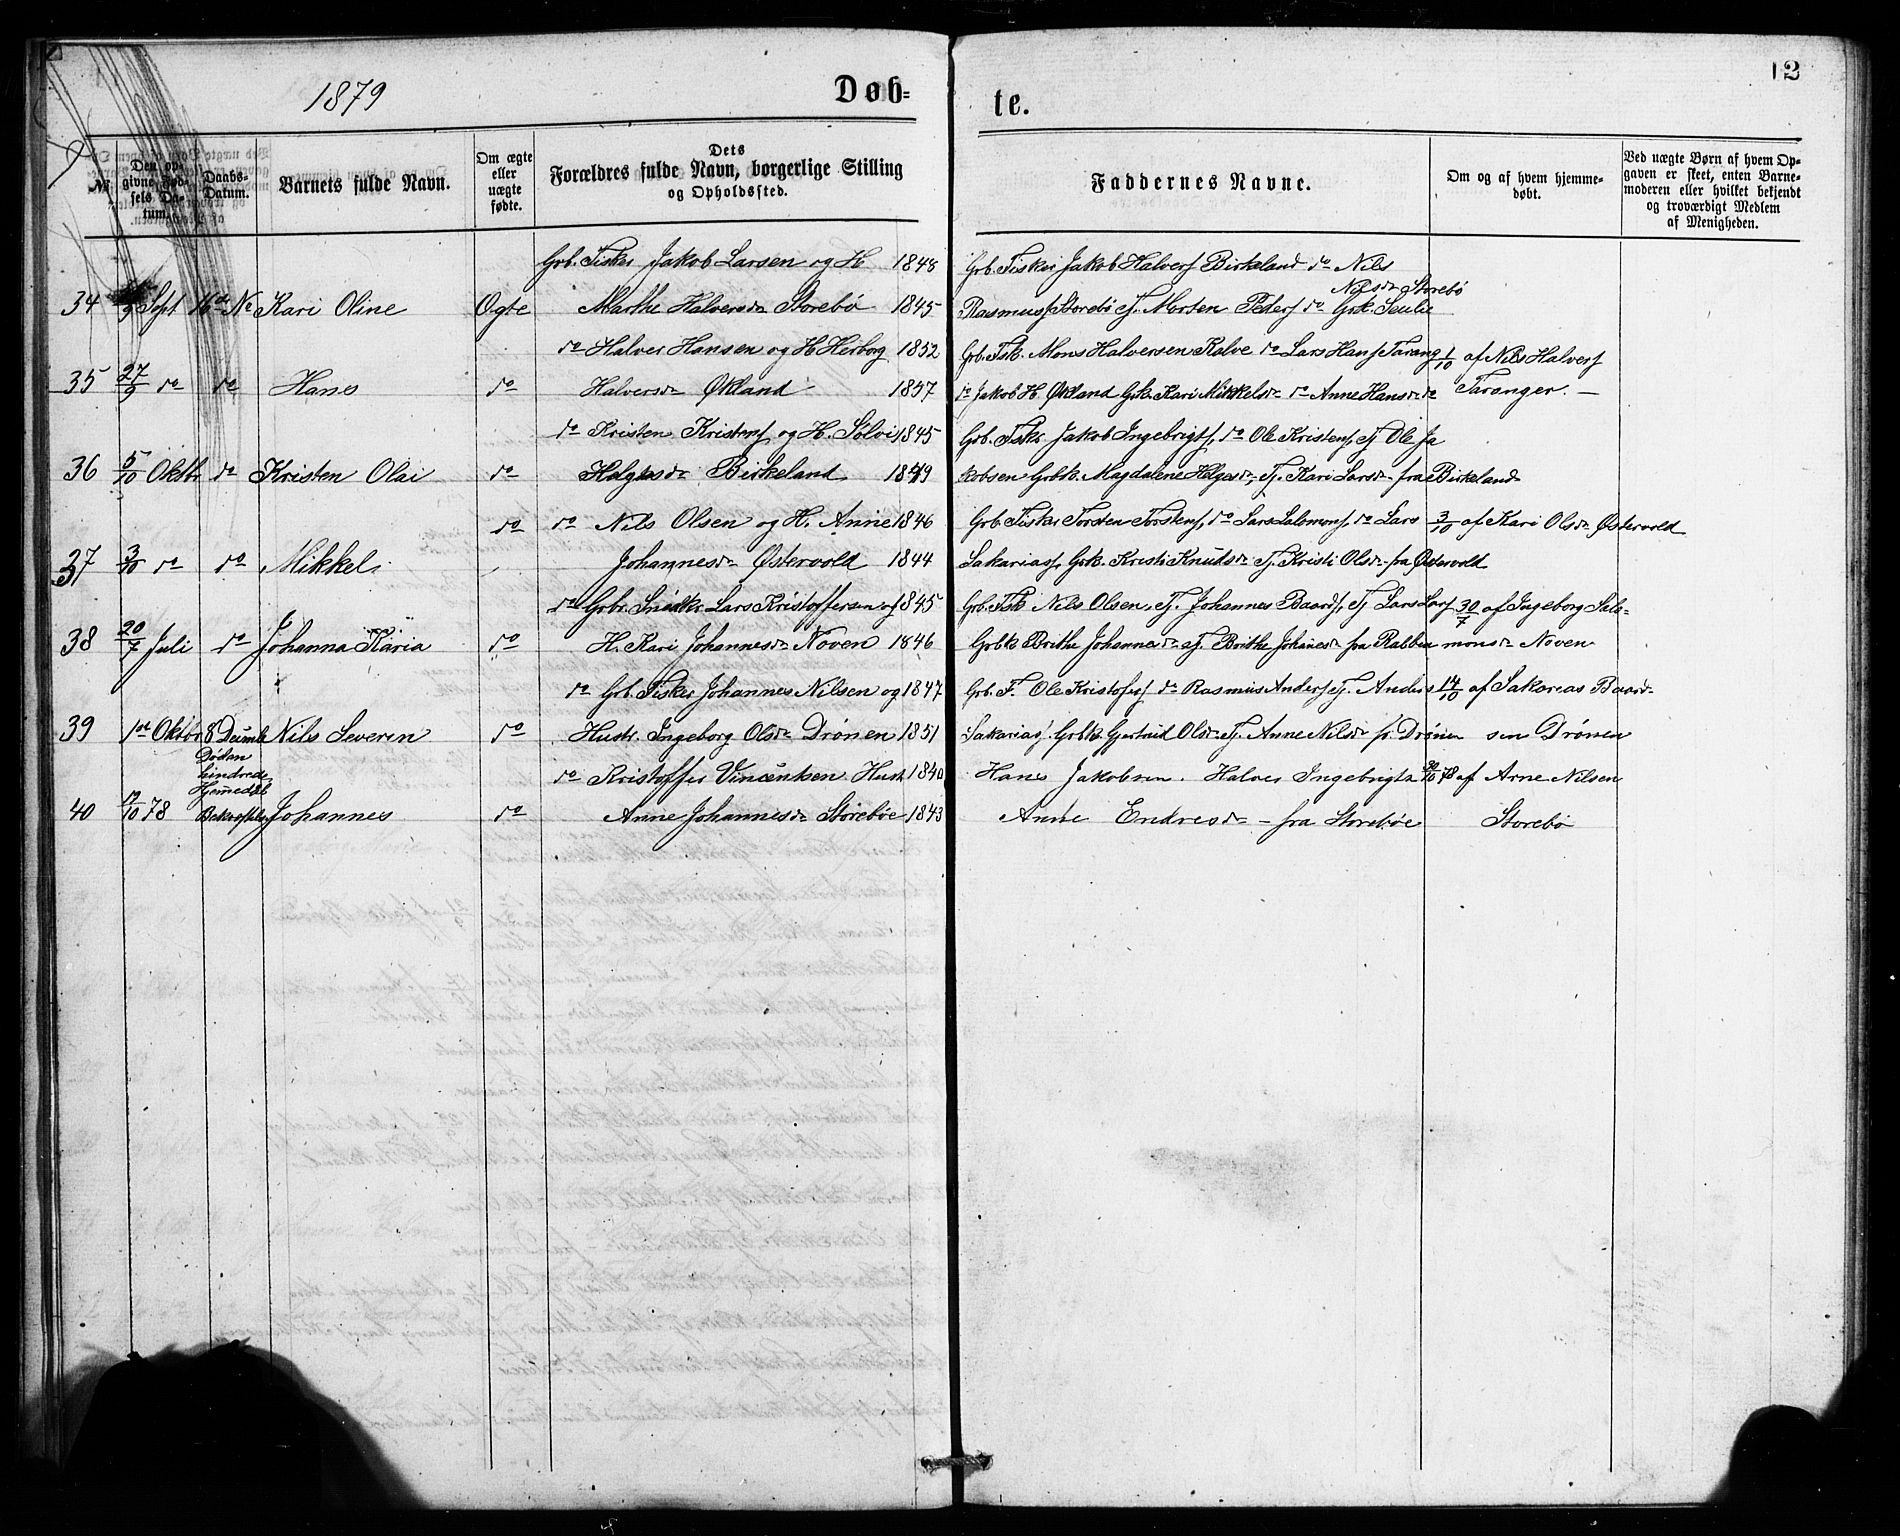 1879
Døb-
te.
12
№
Den op-
givne Fød-
sels Da-
tum.
Daabs-
Datum.
Barnets fulde Navn.
Om ægte
eller
uægte
fødte.
Dets
Forældres fulde Navn, borgerlige Stilling
og Opholdssted.
Faddernes Navne.
Om og af hvem hjemme-
døbt.
Ved uægte Børn af hvem Op-
gaven er skeet, enten Barne-
moderen eller hvilket bekjendt
og troværdigt Medlem
af Menigheden.
Grb. Fisker Jakob Larsen og H 1848 Grb. Fisker Jakob Halvers Birkeland do Nils
Nilsdr Storebø
34 Sept 16de Kari Oline Ogte Marthe Halversdr Storebø 1845 Rasmuss Storebø Tj. Morten Peders do Grk.
do Halver Hansen og H Herborg 1852 Grb. Fsk. Mons Halversen Kalve do Lars Hans Tarang 1/10 af Nils Halvers
35 27/9 do do Hans do Halversdr Økland 1857 do Jakob H. Økland Grk. Kari Mikkelsdr do Anne Hansdr do Taranger. —
do Kristen Kristens og H. Sølvi 1845 Grb. Fiskr Jakob Ingebrigts, do Ole Kristens, Tj Ole Ja
36 5/10 Oktbr do Kristen Olai do Helgesdr Birkeland 1849 kobsen Grbk. Magdalene Helgesdr, Tj. Kari Larsdr fra Birkeland
do do Nils Olsen og H. Anne 1846 Grb. Fisker Torsten Torstens, do Lars Salomons, do Lars 3/10 af Kari Olsdr Østervold
37 3/10 do do Mikkel Johannesdr Østervold 1844 Sakarias, Grk. Kristi Knudsdr Tj. Kristi Olsdr fra Østervold
do Grbr. Snedkr. Lars Kristoffersen og 1845 Grb. Fsk Nils Olsen, Tj. Johannes Baards, Tj Lars Lars 30/7 af Ingeborg Salo-
38 20/7 Juli do Johanna Karia do H. Kari Johannesdr Noven 1846 Grbk Brithe Johannesdr Tj. Brithe Johanesdr fra Rabben monsdr Noven
do Grb. Fisker Johannes Nilsen og 1847 Grb. F. Ole Kristofers do Rasmus Anders Tj. Anders 14/10 af Sakarias Baard-
39 1ste Oktbr 8 Nils Severin do Hustr. Ingeborg Olsdr Drønen 1851 Sakarias. Grbk. Gjertrud Olsdr Tj. Anne Nilsdr fr. Drønen sen Drønen
Døden
hindrede
Hjemedøb
do Kristoffer Vincentsen Hust. 1840 Hans Jakobsen. Halver Ingebrigts 78 af Arne Nilsen
40 10 78 Johannes do Anne Johannesdr Storebøe 1843 Anne Endresdr — fra Storebøe Storebø